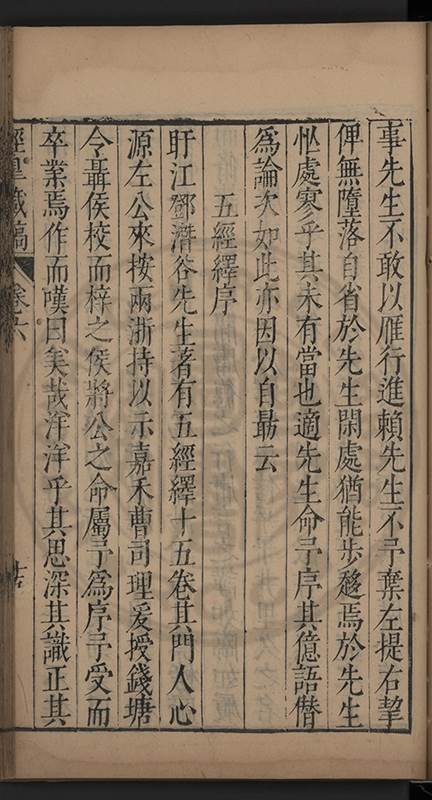 事先生不敢以雁行進賴先生不予棄左提右挈
俾無墮落自省於先生閑處猶能步趨焉於先生
怭處寥乎其未有當也適先生命予序其億語僭
為論次如此亦因以自勗云
五經繹序
盱江鄧潛谷先生著有五經繹十五卷其門人心
源左公來按兩浙持以示嘉禾曹司理爰授錢塘
令聶侯校而梓之侯將公之命屬予為序予受而
卒業焉作而嘆曰美哉洋洋乎其思深其識正其
卷六